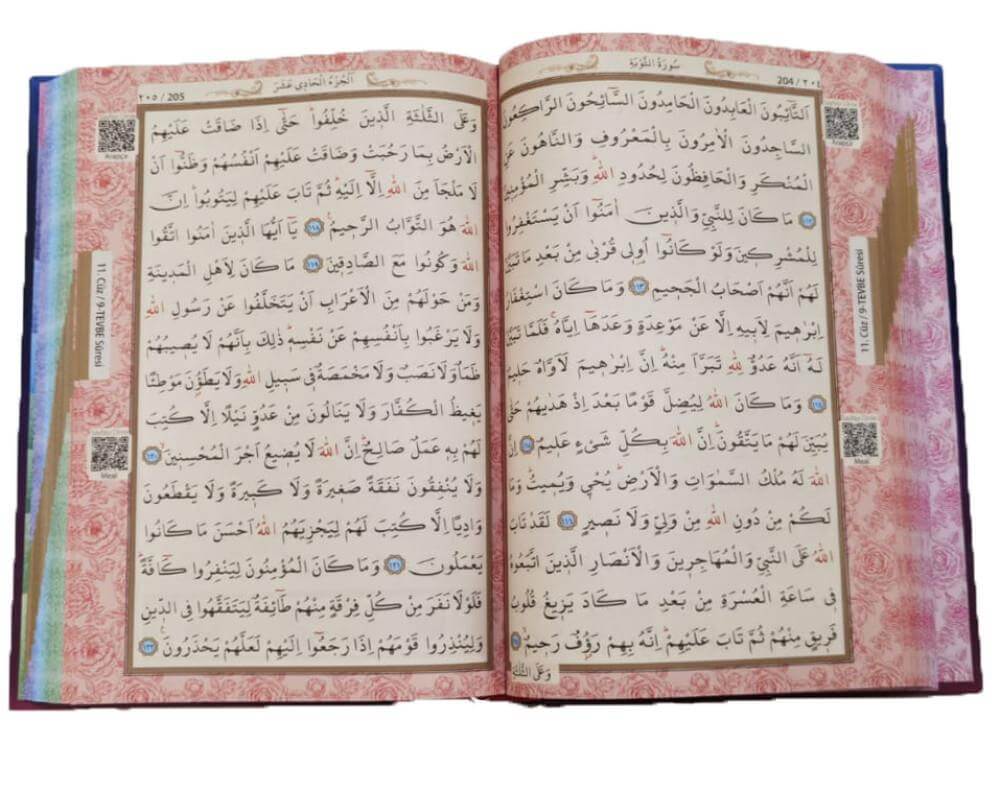 سُورَةُ التَّوْبَةِ
204 / ٢٠٤
اَلتَّٓائِبُونَ الْعَابِدُونَ الْحَامِدُونَ السَّٓائِحُونَ الرَّاكِعُونَ
السَّاجِدُونَ الْاٰمِرُونَ بِالْمَعْرُوفِ وَالنَّاهُونَ عَنِ
الْمُنْكَرِ وَالْحَافِظُونَ لِحُدُودِ اللّٰهِۜ وَبَشِّرِ الْمُؤْمِن۪ينَ
﴿١١٢﴾ مَا كَانَ لِلنَّبِيِّ وَالَّذ۪ينَ اٰمَنُٓوا اَنْ يَسْتَغْفِرُوا
لِلْمُشْرِك۪ينَ وَلَوْ كَانُٓوا اُو۬ل۪ي قُرْبٰى مِنْ بَعْدِ مَا تَبَيَّنَ
لَهُمْ اَنَّهُمْ اَصْحَابُ الْجَح۪يمِ ﴿١١٣﴾ وَمَا كَانَ اسْتِغْفَارُ
اِبْرٰه۪يمَ لِاَب۪يهِ اِلَّا عَنْ مَوْعِدَةٍ وَعَدَهَٓا اِيَّاهُۚ فَلَمَّا تَبَيَّنَ
لَهُٓ اَنَّهُ عَدُوٌّ لِلّٰهِ تَبَرَّاَ مِنْهُۜ اِنَّ اِبْرٰه۪يمَ لَاَوَّاهٌ حَل۪يمٌ
﴿١١٤﴾ وَمَا كَانَ اللّٰهُ لِيُضِلَّ قَوْمًا بَعْدَ اِذْ هَدٰيهُمْ حَتّٰى
يُبَيِّنَ لَهُمْ مَا يَتَّقُونَۜ اِنَّ اللّٰهَ بِكُلِّ شَيْءٍ عَل۪يمٌ ﴿١١٥﴾ اِنَّ
اللّٰهَ لَهُ مُلْكُ السَّمٰوَاتِ وَالْاَرْضِۜ يُحْي۪ وَيُم۪يتُۜ وَمَا
لَكُمْ مِنْ دُونِ اللّٰهِ مِنْ وَلِيٍّ وَلَا نَص۪يرٍ ﴿١١٦﴾ لَقَدْ تَابَ
اللّٰهُ عَلَى النَّبِيِّ وَالْمُهَاجِر۪ينَ وَالْاَنْصَارِ الَّذ۪ينَ اتَّبَعُوهُ
ف۪ي سَاعَةِ الْعُسْرَةِ مِنْ بَعْدِ مَا كَادَ يَز۪يغُ قُلُوبُ
فَر۪يقٍ مِنْهُمْ ثُمَّ تَابَ عَلَيْهِمْۜ اِنَّهُ بِهِمْ رَؤُ۫فٌ رَح۪يمٌۙ ﴿١١٧﴾
وَعَلَى الثَّلٰثَةِ
Arapça
11. Cüz / 9-TEVBE Sûresi
Meal
اَلْجُزْءُ الْحَاد۪ي عَشَرَ
٢٠٥ / 205
وَعَلَى الثَّلٰثَةِ الَّذ۪ينَ خُلِّفُواۜ حَتّٰٓى اِذَا ضَاقَتْ عَلَيْهِمُ
الْاَرْضُ بِمَا رَحُبَتْ وَضَاقَتْ عَلَيْهِمْ اَنْفُسُهُمْ وَظَنُّٓوا اَنْ
لَا مَلْجَاَ مِنَ اللّٰهِ اِلَّٓا اِلَيْهِۜ ثُمَّ تَابَ عَلَيْهِمْ لِيَتُوبُواۜ اِنَّ
اللّٰهَ هُوَ التَّوَّابُ الرَّح۪يمُ۟ ﴿١١٨﴾ يَٓا اَيُّهَا الَّذ۪ينَ اٰمَنُوا اتَّقُوا
اللّٰهَ وَكُونُوا مَعَ الصَّادِق۪ينَ ﴿١١٩﴾ مَا كَانَ لِاَهْلِ الْمَد۪ينَةِ
وَمَنْ حَوْلَهُمْ مِنَ الْاَعْرَابِ اَنْ يَتَخَلَّفُوا عَنْ رَسُولِ اللّٰهِ
وَلَا يَرْغَبُوا بِاَنْفُسِهِمْ عَنْ نَفْسِه۪ۜ ذٰلِكَ بِاَنَّهُمْ لَا يُص۪يبُهُمْ
ظَمَاٌ وَلَا نَصَبٌ وَلَا مَخْمَصَةٌ ف۪ي سَب۪يلِ اللّٰهِ وَلَا يَطَؤُ۫نَ مَوْطِئًا
يَغ۪يظُ الْكُفَّارَ وَلَا يَنَالُونَ مِنْ عَدُوٍّ نَيْلًا اِلَّا كُتِبَ
لَهُمْ بِه۪ عَمَلٌ صَالِحٌۜ اِنَّ اللّٰهَ لَا يُض۪يعُ اَجْرَ الْمُحْسِن۪ينَۙ ﴿١٢٠﴾
وَلَا يُنْفِقُونَ نَفَقَةً صَغ۪يرَةً وَلَا كَب۪يرَةً وَلَا يَقْطَعُونَ
وَادِيًا اِلَّا كُتِبَ لَهُمْ لِيَجْزِيَهُمُ اللّٰهُ اَحْسَنَ مَا كَانُوا
يَعْمَلُونَ ﴿١٢١﴾ وَمَا كَانَ الْمُؤْمِنُونَ لِيَنْفِرُوا كَٓافَّةًۜ
فَلَوْلَا نَفَرَ مِنْ كُلِّ فِرْقَةٍ مِنْهُمْ طَٓائِفَةٌ لِيَتَفَقَّهُوا فِي الدّ۪ينِ
وَلِيُنْذِرُوا قَوْمَهُمْ اِذَا رَجَعُٓوا اِلَيْهِمْ لَعَلَّهُمْ يَحْذَرُونَ۟ ﴿١٢٢﴾
Arapça
11. Cüz / 9-TEVBE Sûresi
Meal